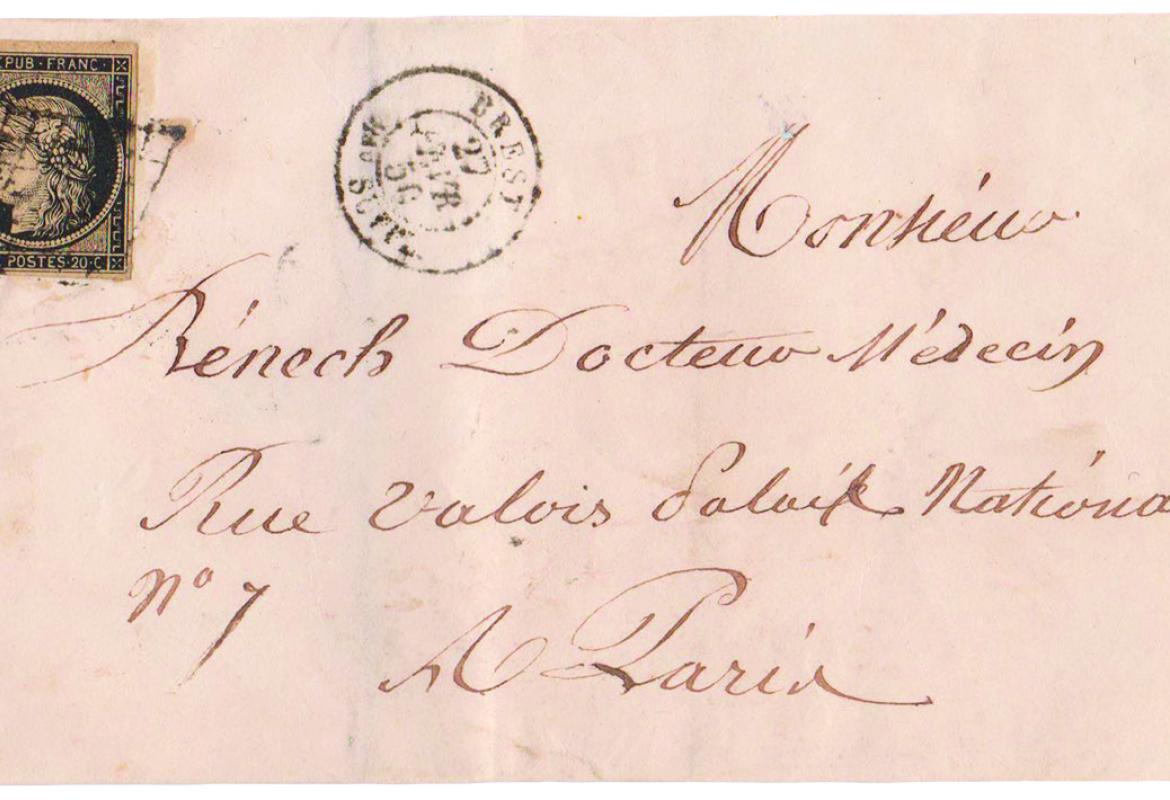 EPUB · FRANC ·
POSTES · 20 · C
BREST
27
50
Monsieur
Rénech Docteur Médecin
Rue Valois Palais Nationa
N° 7
A Paris